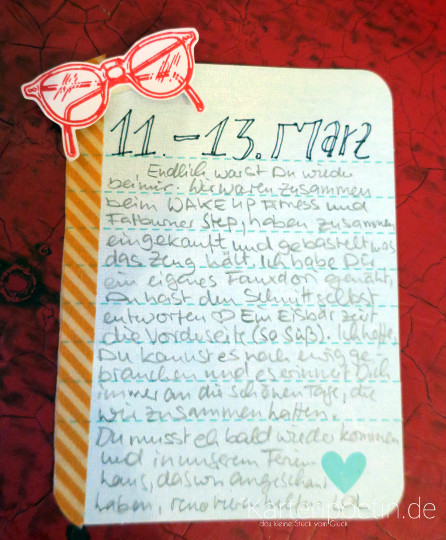 11.-13. März
Endlich warst Du wieder
bei mir. Wir waren zusammen
beim WAKE UP Fitness und
Fatburner Step, haben zusammen
eingekauft und gebastelt was
das Zeug hält. Ich habe Dir
ein eigenes genäht,
Du hast den Schnitt selbst
entworfen ♡ Ein Eisbär ziert
die Vorderseite (so süß). Ich hoffe,
Du kannst es noch ewig ge-
brauchen und es erinnert Dich
immer an die schönen Tage, die
wir zusammen hatten.
Du musst eh bald wieder kommen
und in unserem Ferien-
haus, das wir angeschaut
haben,
kartenpoetin.de
das kleine Stück vom Glück